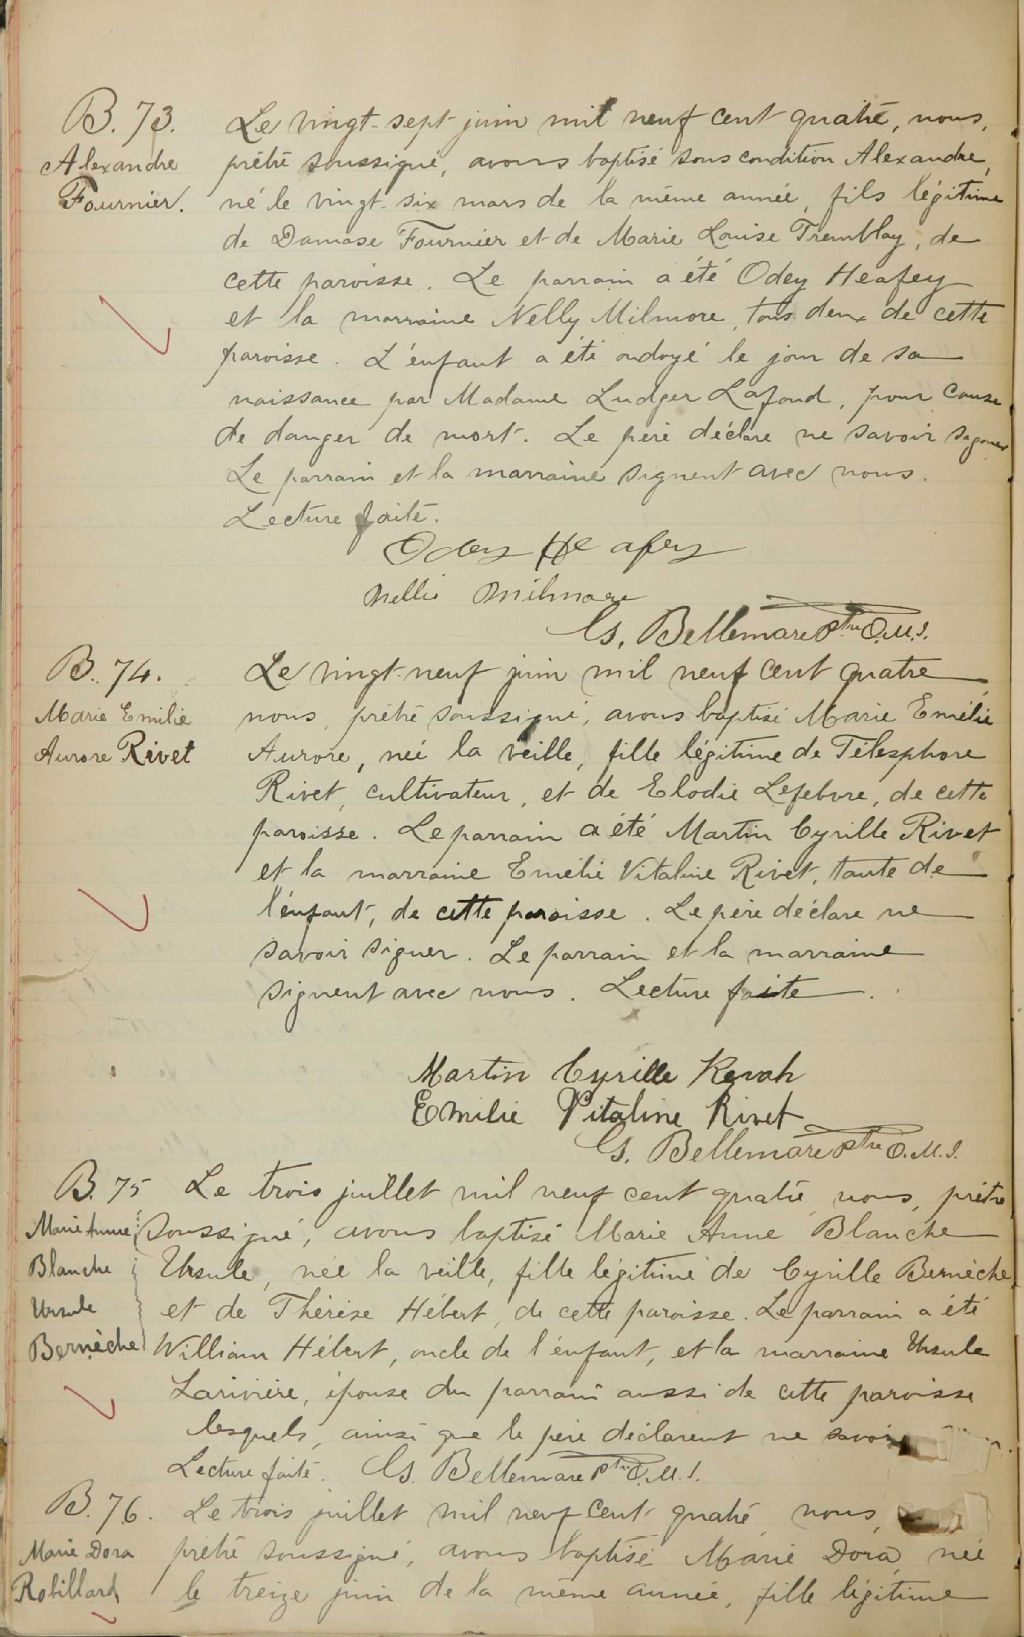 B. 73.
Alexandre
Fournier.
Le vingt-sept juin mil neuf cent quatre, nous,
prêtre soussigné, avons baptisé sous condition Alexandre,
né le vingt-six mars de la même année, fils légitime
de Damase Fournier et de Marie Louise Tremblay, de
cette paroisse. Le parrain a été Odey Heafey
et la marraine Nelly Milmore, tous deux de cette
paroisse. L'enfant a été ondoyé le jour de sa
naissance par Madame Ludger Lafond, pour cause
de danger de mort. Le père déclare ne savoir signer
Le parrain et la marraine signent avec nous.
Lecture faite.
Odey Heafey
Nellie Milmore
Gs. Bellemare Ptre O.M.I.
B. 74.
Marie Emilie
Aurore Rivet
Le vingt-neuf juin mil neuf cent quatre,
nous, prêtre soussigné, avons baptisé Marie Emélie
Aurore, née la veille, fille légitime de Télesphore
Rivet, cultivateur, et de Elodie Lefebvre, de cette
paroisse. Le parrain a été Martin Cyrille Rivet
et la marraine Emélie Vitaline Rivet, tante de
l'enfant, de cette paroisse. Le père déclare ne
savoir signer. Le parrain et la marraine
signent avec nous. Lecture faite.
Martin Cyrille
Emilie Vitaline Rivet
Gs. Bellemare Ptre O.M.I.
B. 75
Marie Anne
Blanche
Ursule
Bernèche
Le trois juillet mil neuf cent quatre, nous, prêtre
soussigné, avons baptisé Marie Anne Blanche
Ursule, née la veille, fille légitime de Cyrille Bernèche
et de Thérèse Hébert, de cette paroisse. Le parrain a été
William Hébert, oncle de l'enfant, et la marraine Ursule
Larivière, épouse du parrain aussi de cette paroisse
lesquels, ainsi que le père déclarent ne savoir
Lecture faite. Gs. Bellemare Ptre O.M.I.
B. 76.
Marie Dora
Robillard
Le trois juillet mil neuf cent quatre, nous,
prêtre soussigné, avons baptisé Marie Dora, née
le treize juin de la même année, fille légitime